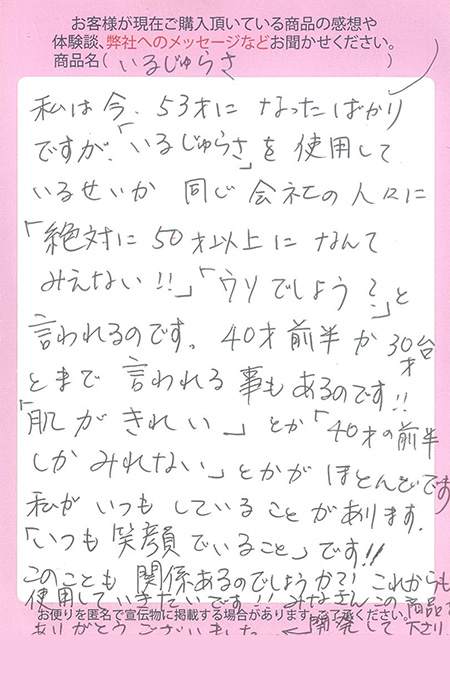 お客様が現在ご購入頂いている商品の感想や
体験談、弊社へのメッセージなどお聞かせください。
商品名(いるじゅらさ)
私は今、53才に なったばかり
ですが、「いるじゅらさ」を 使用して
いるせいか 同じ 会社の 人々に
「絶対に 50才以上に なんて
みえない!!」「ウソでしょう?」と
言われるのです。40才前半か 30才台
とまで 言われる 事も あるのです!!
「肌が きれい」 とか「40才の前半
しか みれない」とかが ほとんどです
私が いつも していることが あります.
「いつも 笑顔で いること」です!!
このことも 関係あるのでしょうか?! これからも
使用していきたいです!! みなさん この商品を
お便りを匿名で宣伝物に掲載する場合があります。ご了承ください。
ありがとうございました。← 開発して下さり